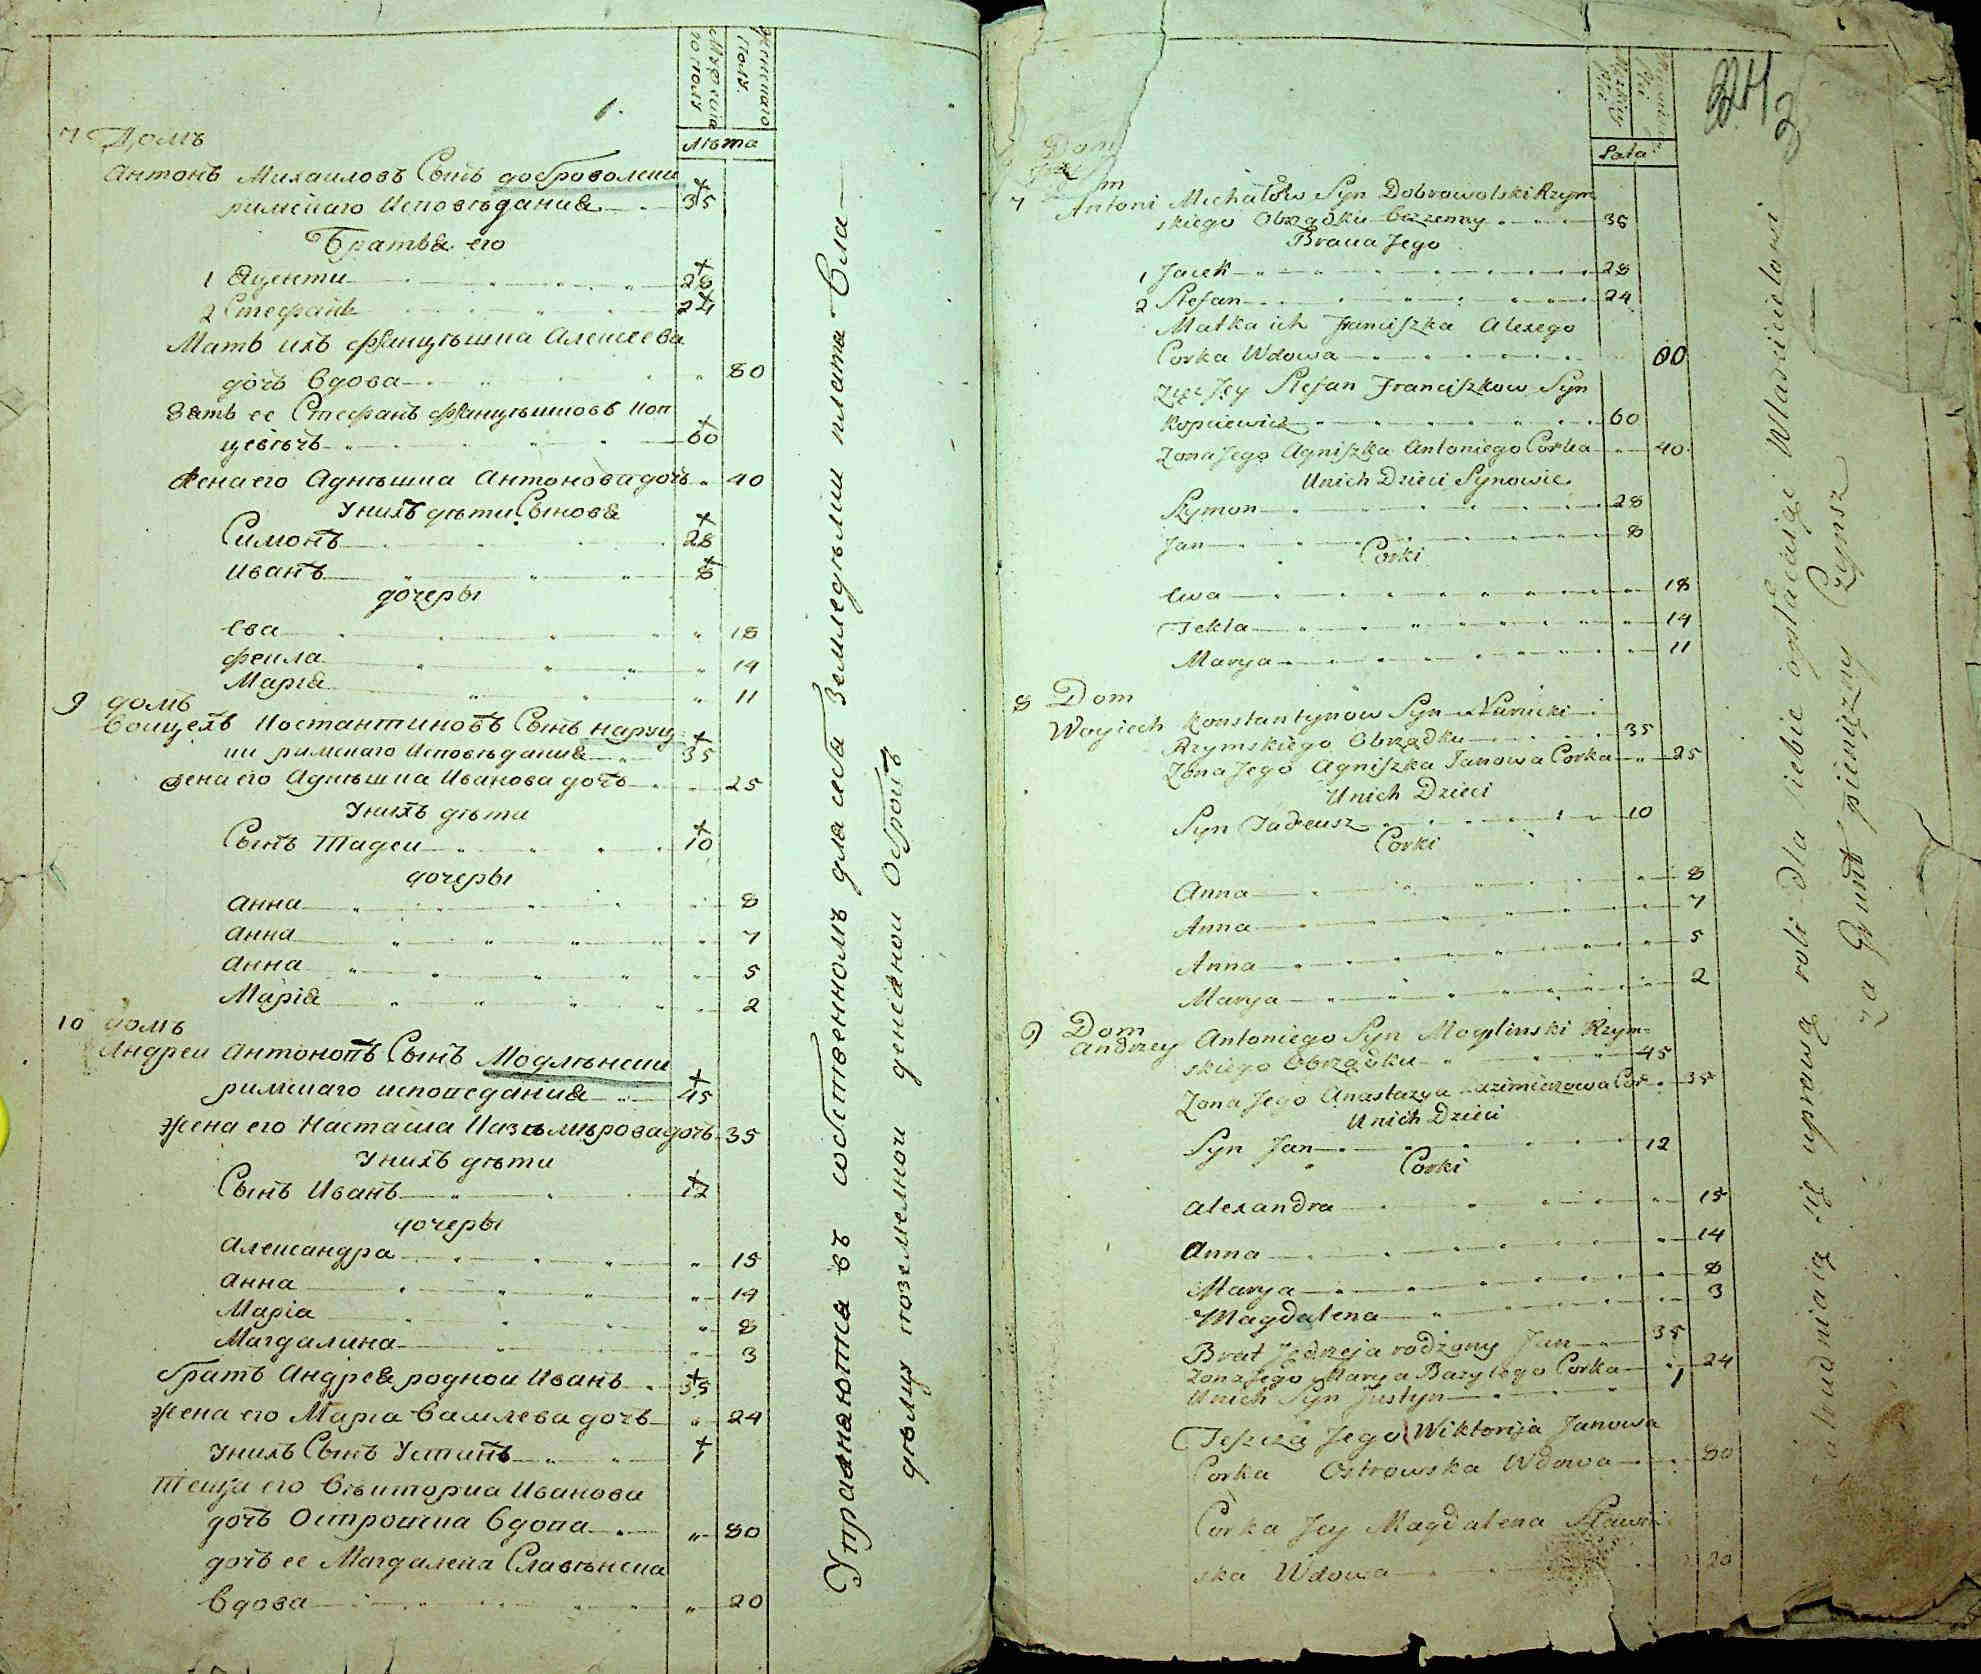 мужеска
го полу
женскаго
полу
Лѣта
7 Домъ
Антонъ Михаиловъ Сынъ доброволски
римскаго Исповѣдания 35
Братья его
1 Яценти 28
2 Стефанъ 24
Мать ихъ Францѣшка Алексеева
дочь вдова 80
Зять ее Стефанъ Францѣшковъ Коп
цевѣчъ 60
Жена его Агнѣшка Антонова дочь 40
Унихъ дѣти Сыновя
Симонъ 28
Иванъ 8
дочеры
Ева 18
Фекла 14
Марiя 11
9 домъ
Войцехъ Костантиновъ Сынъ наруц
ки римскаго Исповѣдания 35
Жена его Агнѣшка Иванова дочь 25
Унихъ дѣти
Сынъ Тадеи 10
дочеры
Анна 8
Анна 7
Анна 5
Марiя 2
10 домъ
Андреи Антоновъ Сынъ Модлѣнски
римскаго исповедания 45
Жена его Настасiа Казимѣрова дочь 35
Унихъ дѣти
Сынъ Иванъ 12
дочеры
Александра 15
Анна 14
Марiа 8
Магдалина 3
братъ Андрея роднои Иванъ 35
Жена его Марiа Василева дочь 24
Унихъ Сынъ Устинъ 1
Теща его Вѣкториа Иванова
дочь Островска вдова 80
дочь ее Магдалена Славѣнска
вдова 20
Упражняются въ собственномъ для себя Земледѣлии плата Вла
дѣлцу поземелнои денежнои Оброкъ
24
2
Lata
Dom
7 Antoni Michałow Syn Dobrowolski Rzym
skiego Obrządku bezzenny 35
Bracia Jego
1 Jacek 28
2 Stefan 24
Matka ich Franciszka Alexego
Corka Wdowa 80
Zięć Jey Stefan Franciszkow Syn
Kopciewicz 60
Zona Jego Agniszka Antoniego Corka 40
Unich Dzieci Synowie
Szymon 28
Jan 8
Corki
Ewa 18
Tekla 14
Marya 11
8 Dom
Woyciech Konstantynow Syn Narucki
Rzymskiego Obrządku 35
Zona Jego Agniszka Janowa Corka 25
Unich Dzieci
Syn Tadeusz 10
Corki
Anna 8
Anna 7
Anna 5
Marya 2
9 Dom
Andrzey Antoniego Syn Modlinski Rzym=
skiego Obrządku 45
Zona Jego Anastazya Kazimierzowa Cor 35
Unich Dzieci
Syn Jan 12
Corki
Alexandra 15
Anna 14
Marya 8
Magdalena 3
Brat Jędrzeja rodzony Jan 35
Zona Jego Marya Bazylego Corka 24
Unich Syn Justyn 1
Teszcza Jego Wiktorija Janowa
Corka Ostrowska Wdowa 80
Corka Jey Magdalena Sławin
ska Wdowa 20
Zatrudniaią się uprawą roli dla siebie opłacaiąc Właścicielowi
za Grunt pieniężny Czynsz